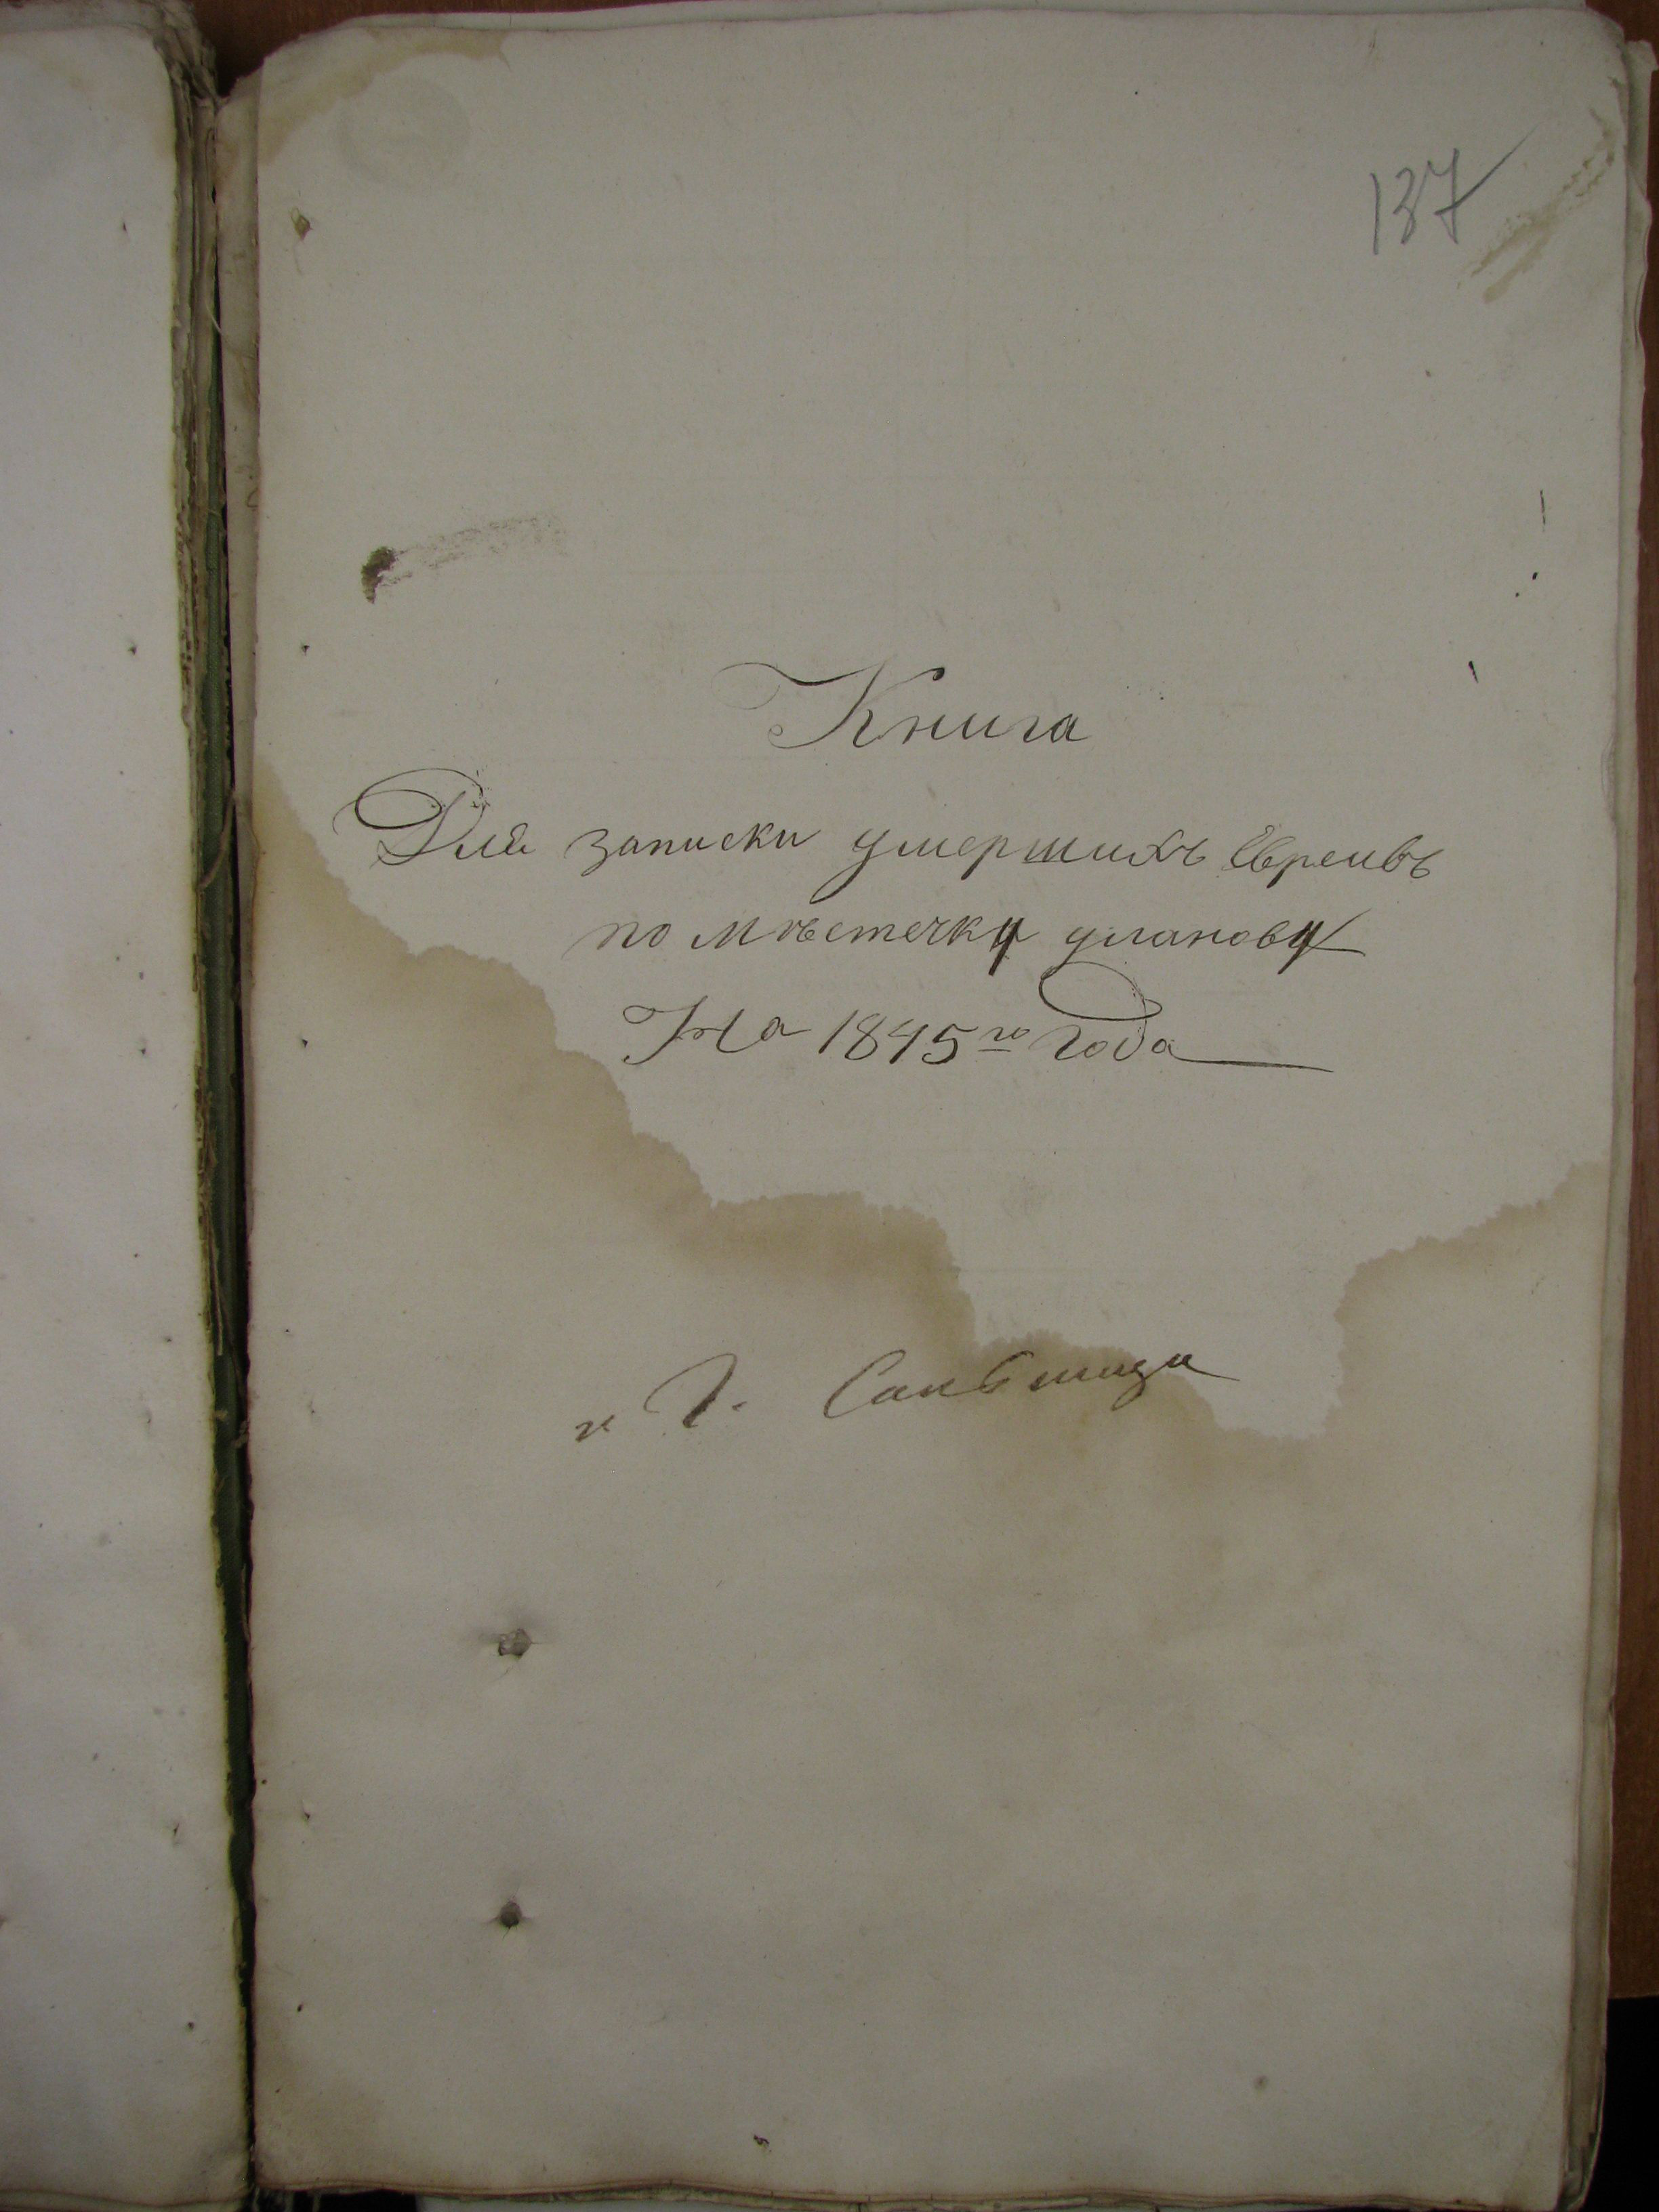 137
Книга
Для записки умершихъ Евреивъ
по мѣстечку уланову
На 1845го Года